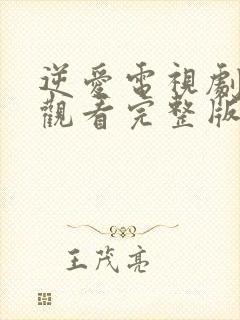 逆愛電視劇
觀看完整版
王茂亮